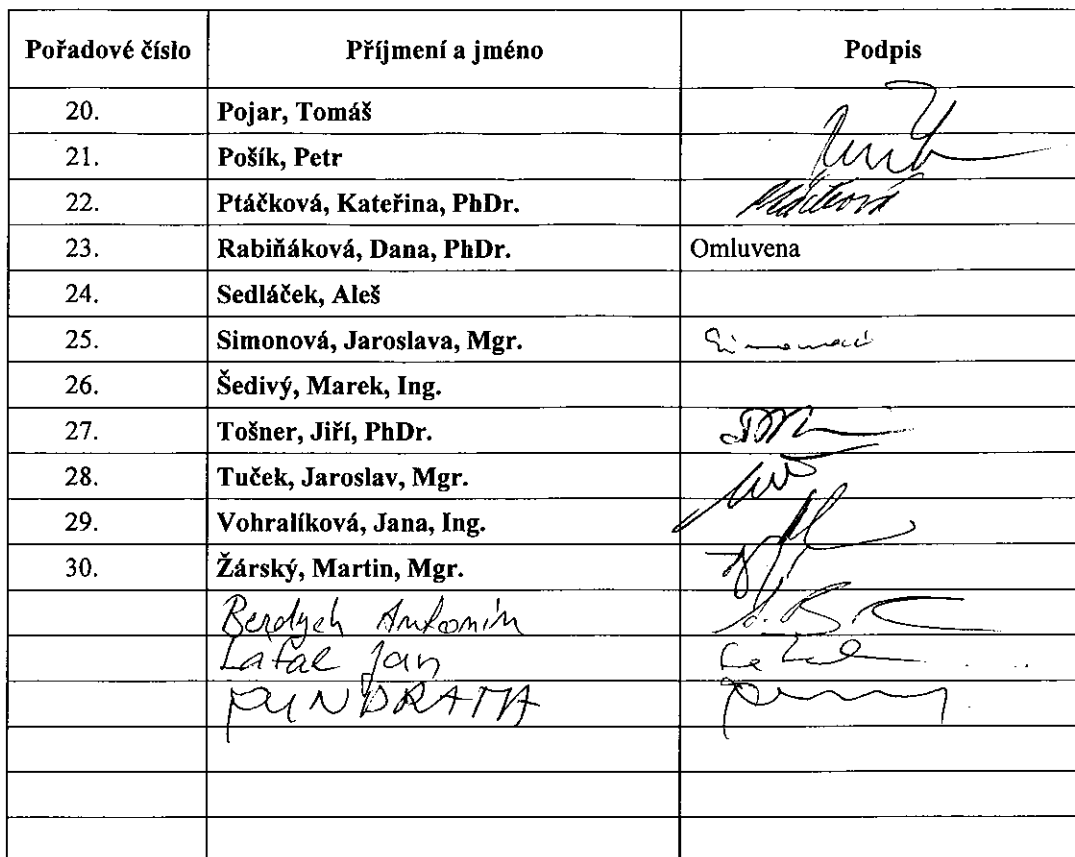 Pořadové číslo Příjmení a jméno Podpis
20. Pojar, Tomáš
21. Pošík, Petr
22. Ptáčková, Kateřina, PhDr. Ptáčková
23. Rabiňáková, Dana, PhDr. Omluvena
24. Sedláček, Aleš
25. Simonová, Jaroslava, Mgr. Simonová
26. Šedivý, Marek, Ing.
27. Tošner, Jiří, PhDr.
28. Tuček, Jaroslav, Mgr.
29. Vohralíková, Jana, Ing.
30. Žárský, Martin, Mgr.
Berdych Antonín
Latal Jan